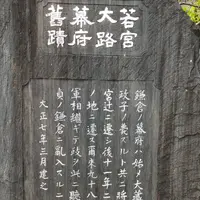 若宮
大路
幕府
舊蹟
鎌倉ノ幕府ハ始メ大蔵
政子ノ薨ズルト共ニ
宮辻ニ遷シ後十一年ニ
ノ地ニ遷ス爾来九十八
軍相継ギテ政ヲ此ニ聴
貞ノ鎌倉ニ乱入スルニ
大正七年三月建之